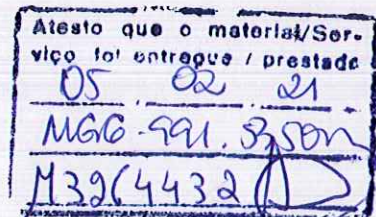 Atesto que o material/Ser-
viço foi entregue / prestado
05 02 21
MG16-991.
M3964432